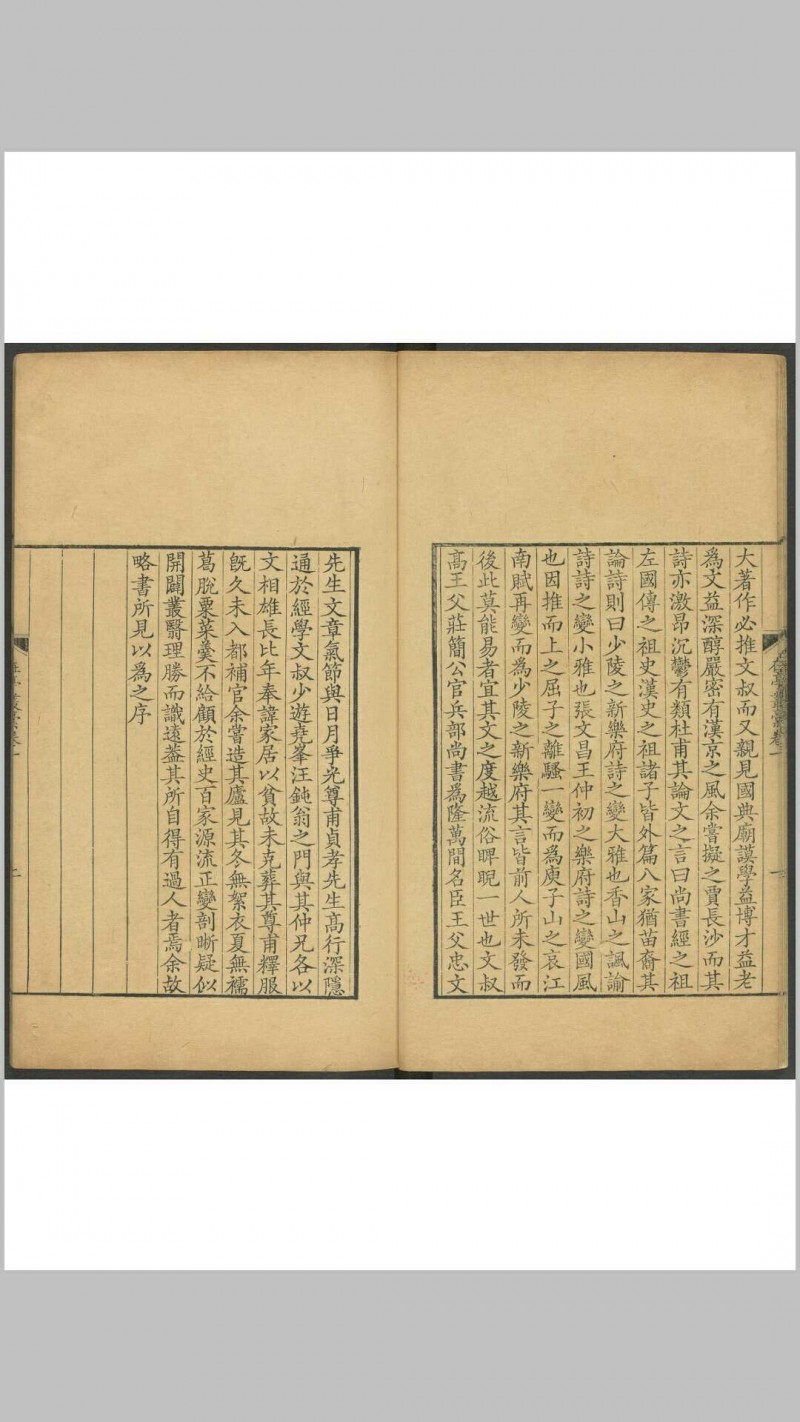 大著作必推文叔而又親見國典廟謨學益博才益老
為文益深醇嚴密有漢京之風余嘗擬之賈長沙而其
詩亦激昂沉鬱有類杜甫其論文之言曰尚書經之祖
左國傳之祖史漢史之祖諸子皆外篇八家猶苗裔其
論詩則曰少陵之新樂府詩之變大雅也香山之諷諭
詩詩之變小雅也張文昌王仲初之樂府詩之變國風
也因推而上之屈子之離騷一變而為庾子山之哀江
南賦再變而為少陵之新樂府其言皆前人所未發而
後此莫能易者宜其文之度越流俗睥睨一世也文叔
高王父莊簡公官兵部尚書為隆萬間名臣王父忠文
先生文章氣節與日月爭光尊甫貞孝先生高行深隱
通於經學文叔少遊堯峯汪鈍翁之門與其仲兄各以
文相雄長比年奉諱家居以貧故未克葬其尊甫釋服
旣久未入都補官余嘗造其廬見其冬無絮衣夏無襦
葛脫粟菜羹不給顧於經史百家源流正變剖晰疑似
開闢叢翳理勝而識遠葢其所自得有過人者焉余故
略書所見以為之序